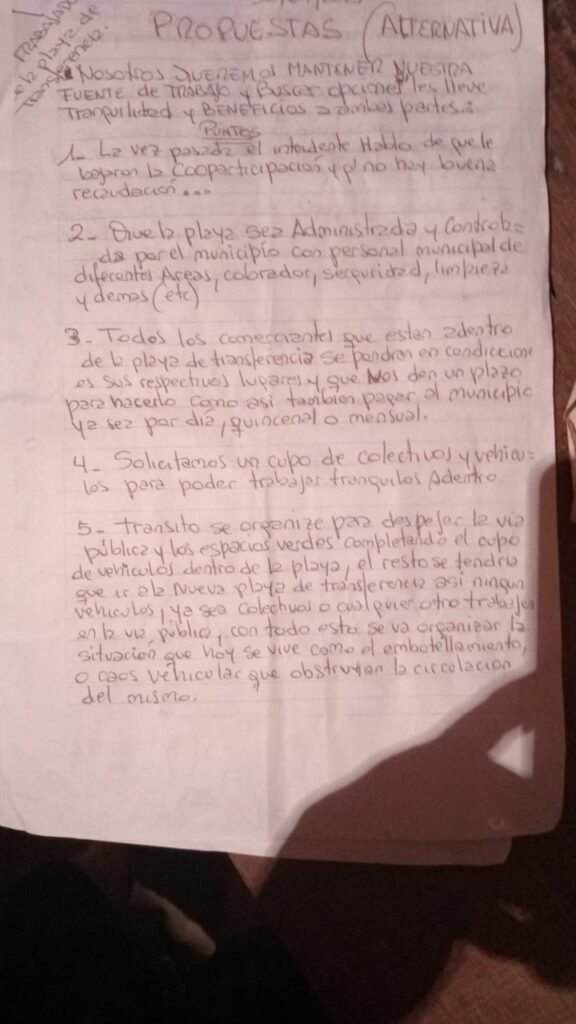 TRABAJAD
de la playa de
Transferencia.
PROPUESTAS (ALTERNATIVA)
Nosotros QUEREMOS MANTENER NUESTRA
FUENTE de TRABAJO y Buscar opciones les lleve
Tranquilidad y BENEFICIOS a ambas partes.:
PUNTOS
1- La vez pasada el intendente Hablo de que le
bajaron la Cooparticipación y p/ no hay buena
recaudación...
2- Que la playa sea Administrada y Controla=
da por el municipio con personal municipal de
diferentes Areas, cobrador, serguridad, limpieza
y demas (etc)
3- Todos los comerciantes que estan adentro
de la playa de transferencia se pondran en condiccion
es sus respectivos lugares y que Nos den un plazo
para hacerlo como asi tambien pagar al municipio
ya sea por día, quincenal o mensual.
4- Solicitamos un cupo de colectivos y vehicu=
los para poder trabajar tranquilos Adentro.
5- Transito se organize para despejar la via
pública y los espacios verdes completando el cupo
de vehiculos dentro de la playa, el resto se tendria
que ir a la Nueva playa de transferencia asi ningun
vehiculos, ya sea Colectivos o cualquier otro trabajen
en la via pública, con todo esto se va organizar la
situación que hoy se vive como el embotellamiento,
o caos vehicular que obstruyan la circulación
del mismo.